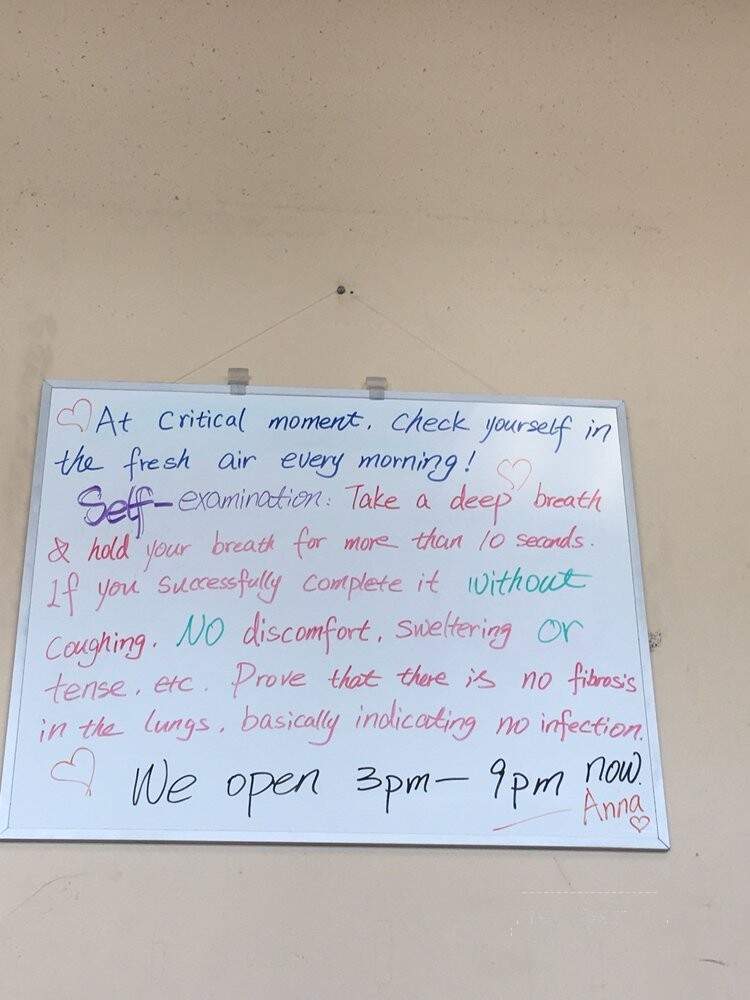 At critical moment, check yourself in
the fresh air every morning!
Self-examination: Take a deep breath
& hold your breath for more than 10 seconds.
If you successfully complete it without
coughing. NO discomfort, sweltering or
tense, etc. Prove that there is no fibrosis
in the lungs, basically indicating no infection.
We open 3pm - 9pm now.
Anna